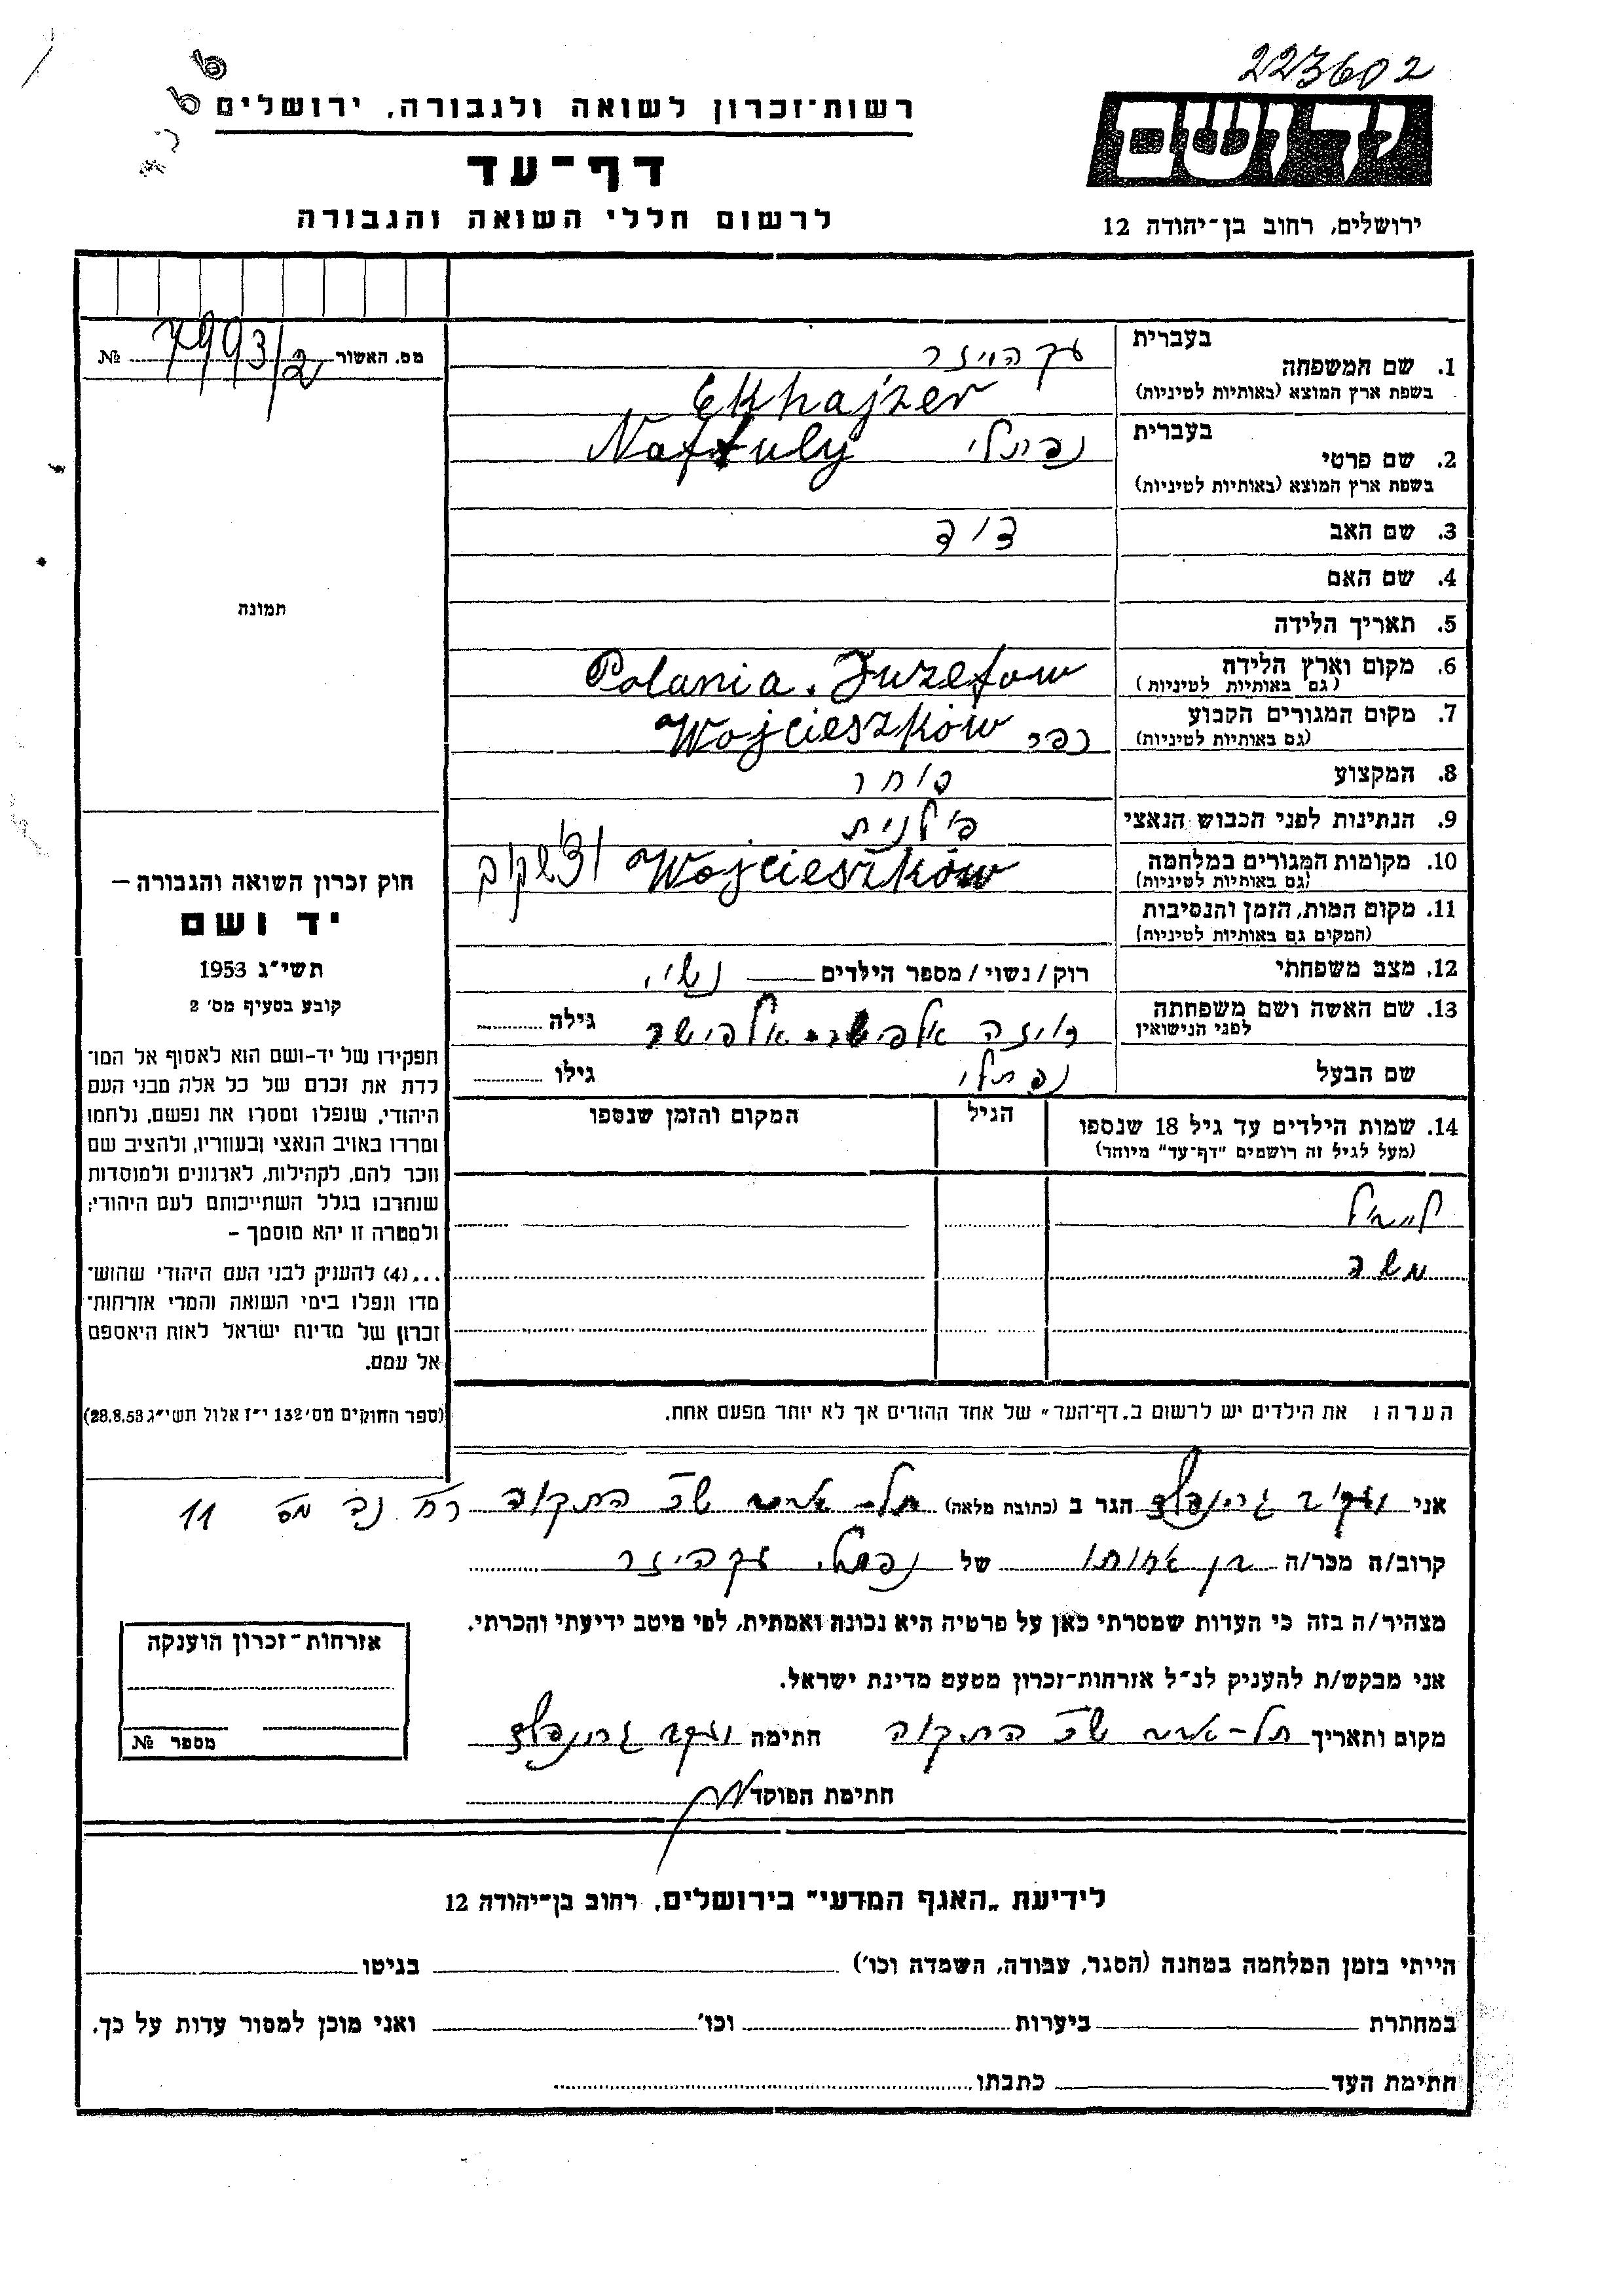 223602
רשות־זכרון לשואה ולגבורה, ירושלים
יד ושם
דף־עד
לרשום חללי השואה והגבורה
ירושלים, רחוב בן־יהודה 12
מס. האשור 7993/2 №
בעברית
1. שם המשפחה עקהייזר
בשפת ארץ המוצא (באותיות לטיניות) Ekhajzer
בעברית
2. שם פרטי נפתלי Naftuly
בשפת ארץ המוצא (באותיות לטיניות)
3. שם האב דוד
4. שם האם
5. תאריך הלידה
6. מקום וארץ הלידה Polania. Juzefow
(גם באותיות לטיניות)
7. מקום המגורים הקבוע Wojcieszków
(גם באותיות לטיניות)
8. המקצוע סוחר
9. הנתינות לפני הכבוש הנאצי פולנית
10. מקומות המגורים במלחמה Wojcieszków
(גם באותיות לטיניות)
11. מקום המות, הזמן והנסיבות
(המקום גם באותיות לטיניות)
12. מצב משפחתי רוק/נשוי/מספר הילדים נשוי
13. שם האשה ושם משפחתה גילה
לפני הנישואין
שם הבעל נפתלי גילו
14. שמות הילדים עד גיל 18 שנספו הגיל המקום והזמן שנספו
(מעל לגיל זה רושמים "דף־עד" מיוחד)
משה
הערה: את הילדים יש לרשום ב„דף־העד" של אחד ההורים אך לא יותר מפעם אחת.
תמונה
חוק זכרון השואה והגבורה –
יד ושם
תשי"ג 1953
קובע בסעיף מס' 2
תפקידו של יד-ושם הוא לאסוף אל המו־
לדת את זכרם של כל אלה מבני העם
היהודי, שנפלו ומסרו את נפשם, נלחמו
ומרדו באויב הנאצי ובעוזריו, ולהציב שם
וזכר להם, לקהילות, לארגונים ולמוסדות
שנחרבו בגלל השתייכותם לעם היהודי;
ולמטרה זו יהא מוסמך –
...(4) להעניק לבני העם היהודי שהוש־
מדו ונפלו בימי השואה והמרי אזרחות־
זכרון של מדינת ישראל לאות היאספם
אל עמם.
(ספר החוקים מס' 132 י"ז אלול תשי"ג 28.8.53)
אני יעקב גרינבלט הגר ב (כתובת מלאה) תל-אביב שכ התקוה רח נב מס 11
קרוב/ה מכר/ה בן אחותו של נפתלי עקהיזר
מצהיר/ה בזה כי העדות שמסרתי כאן על פרטיה היא נכונה ואמתית, לפי מיטב ידיעתי והכרתי.
אני מבקש/ת להעניק לנ"ל אזרחות־זכרון מטעם מדינת ישראל.
מקום ותאריך תל-אביב שכ התקוה חתימה יעקב גרינבלט
חתימת הפוקד
אזרחות־זכרון הוענקה
מספר №
לידיעת „האגף המדעי" בירושלים, רחוב בן־יהודה 12
הייתי בזמן המלחמה במחנה (הסגר, עבודה, השמדה וכו') בגיטו
במחתרת ביערות וכו' ואני מוכן למסור עדות על כך.
חתימת העד כתבתו